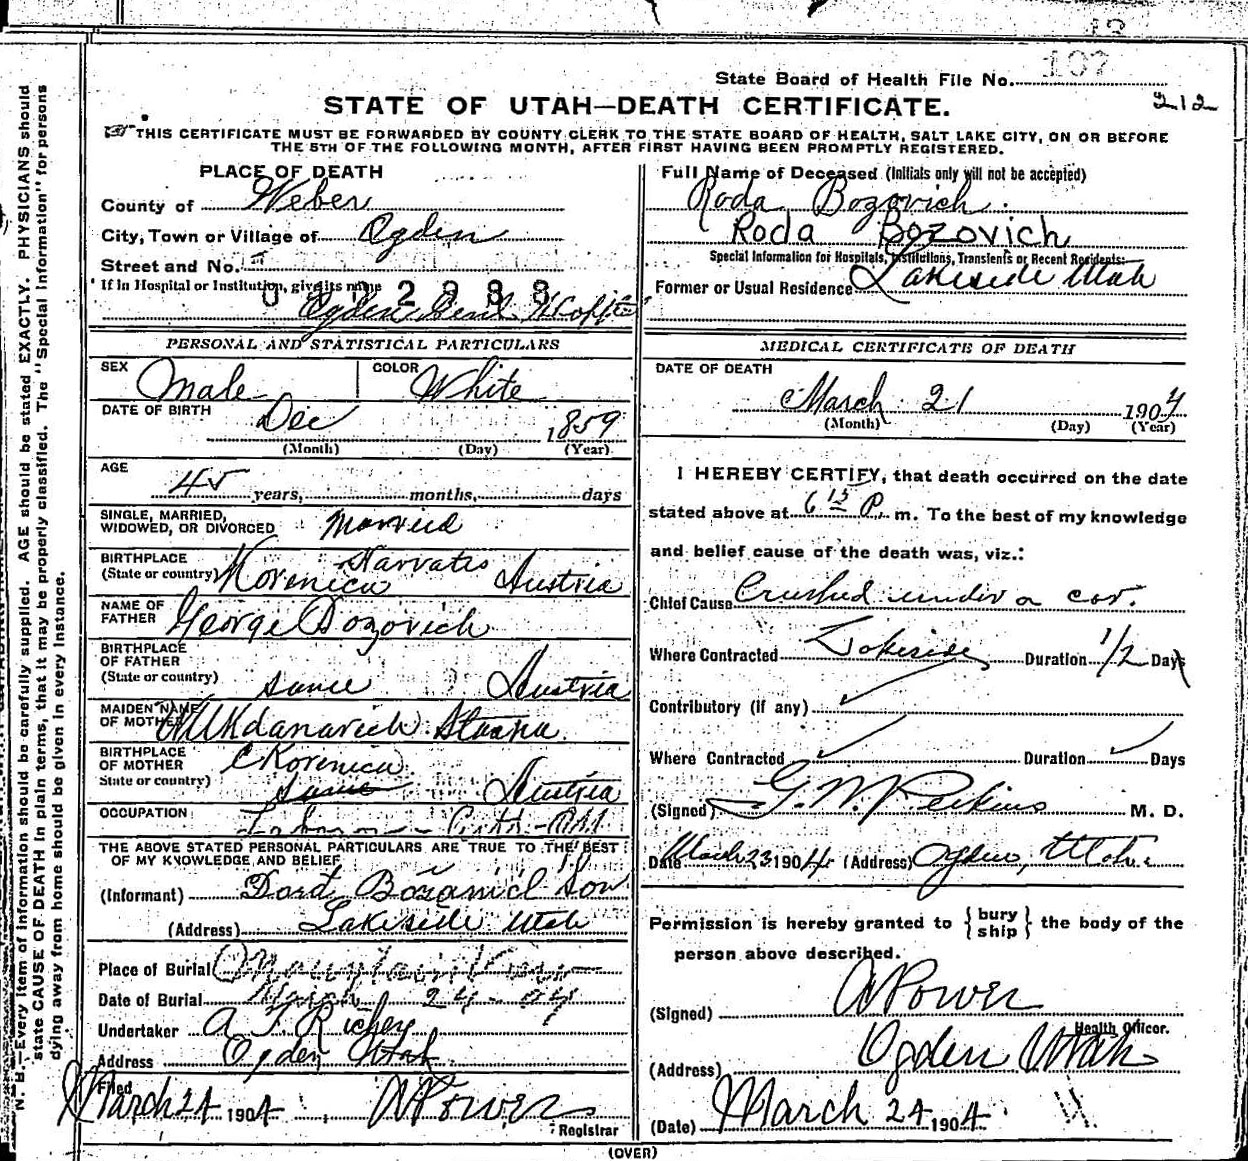 State Board of Health File No. 107
212
STATE OF UTAH—DEATH CERTIFICATE.
THIS CERTIFICATE MUST BE FORWARDED BY COUNTY CLERK TO THE STATE BOARD OF HEALTH, SALT LAKE CITY, ON OR BEFORE
THE 5TH OF THE FOLLOWING MONTH, AFTER FIRST HAVING BEEN PROMPTLY REGISTERED.
PLACE OF DEATH
County of Weber
City, Town or Village of Ogden
Street and No.
If in Hospital or Institution, give its name
Ogden Genl
PERSONAL AND STATISTICAL PARTICULARS
SEX Male COLOR White
DATE OF BIRTH Dec 1859
(Month) (Day) (Year)
AGE
45 years, months, days
SINGLE, MARRIED,
WIDOWED, OR DIVORCED Married
BIRTHPLACE
(State or country) Korenica Austria
NAME OF
FATHER George Bozovich
BIRTHPLACE
OF FATHER
(State or country) same Austria
MAIDEN NAME
OF MOTHER
BIRTHPLACE
OF MOTHER Korenica
State or country) same Austria
OCCUPATION
THE ABOVE STATED PERSONAL PARTICULARS ARE TRUE TO THE BEST
OF MY KNOWLEDGE AND BELIEF
(Informant) Son
(Address) Lakeside Utah
Place of Burial Mountain View
Date of Burial March 24-04
Undertaker A T. Richey
Address Ogden Utah
Filed
March 24 1904
Registrar
Full Name of Deceased (Initials only will not be accepted)
Roda Bozovich.
Roda Bozovich
Special Information for Hospitals, Institutions, Transients or Recent Residents:—
Former or Usual Residence Lakeside Utah
MEDICAL CERTIFICATE OF DEATH
DATE OF DEATH
March 21 1904
(Month) (Day) (Year)
I HEREBY CERTIFY, that death occurred on the date
stated above at 6 15 P. m. To the best of my knowledge
and belief cause of the death was, viz.:
Chief Cause Crushed under a car.
Where Contracted Lakeside Duration 1/2 Days
Contributory (if any)
Where Contracted Duration Days
(Signed) G. W. Perkins M. D.
Date March 23 1904 (Address) Ogden, Utah
Permission is hereby granted to {bury ship} the body of the
person above described.
(Signed)
Health Officer.
(Address) Ogden Utah
(Date) March 24 1904.
(OVER)
N. B.—Every item of information should be carefully supplied. AGE should be stated EXACTLY. PHYSICIANS should
state CAUSE OF DEATH in plain terms, that it may be properly classified. The "Special Information" for persons
dying away from home should be given in every instance.